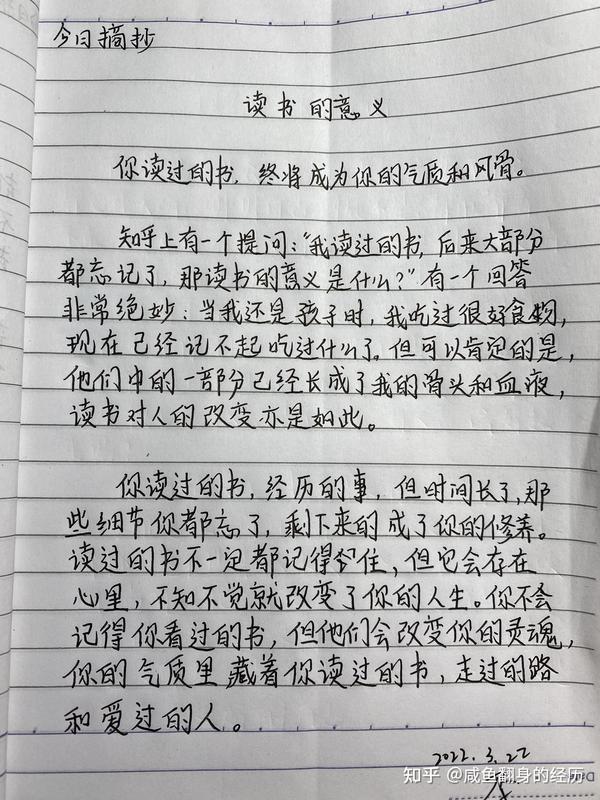 今日摘抄
读书的意义
你读过的书，终将成为你的气质和风骨。
知乎上有一个提问：“我读过的书，后来大部分
都忘记了，那读书的意义是什么？”有一个回答
非常绝妙：当我还是孩子时，我吃过很好食物，
现在已经记不起吃过什么了。但可以肯定的是，
他们中的一部分已经长成了我的骨头和血液，
读书对人的改变亦是如此。
你读过的书，经历的事，但时间长了，那
些细节你都忘了，剩下来的成了你的修养。
读过的书不一定都记得住，但它会存在
心里，不知不觉就改变了你的人生。你不会
记得你看过的书，但他们会改变你的灵魂，
你的气质里藏着你读过的书，走过的路
和爱过的人。
2022.3.22
知乎 @咸鱼翻身的经历